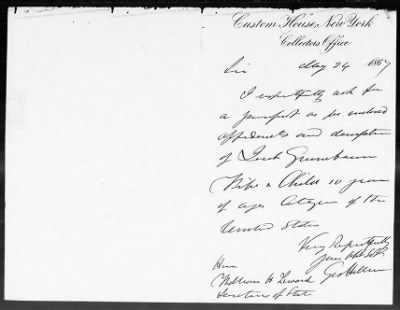 Custom House, New York
Collectors Office
May 24 1867
Sir
I respectfully ask for
a passport as per enclosed
affidavits and description
of Grunebaum
Wife & Child 10 years
of age Citizen of the
United States
Very Respectfully
your Obt Svt
Hon
William H Seward
Secretary of State